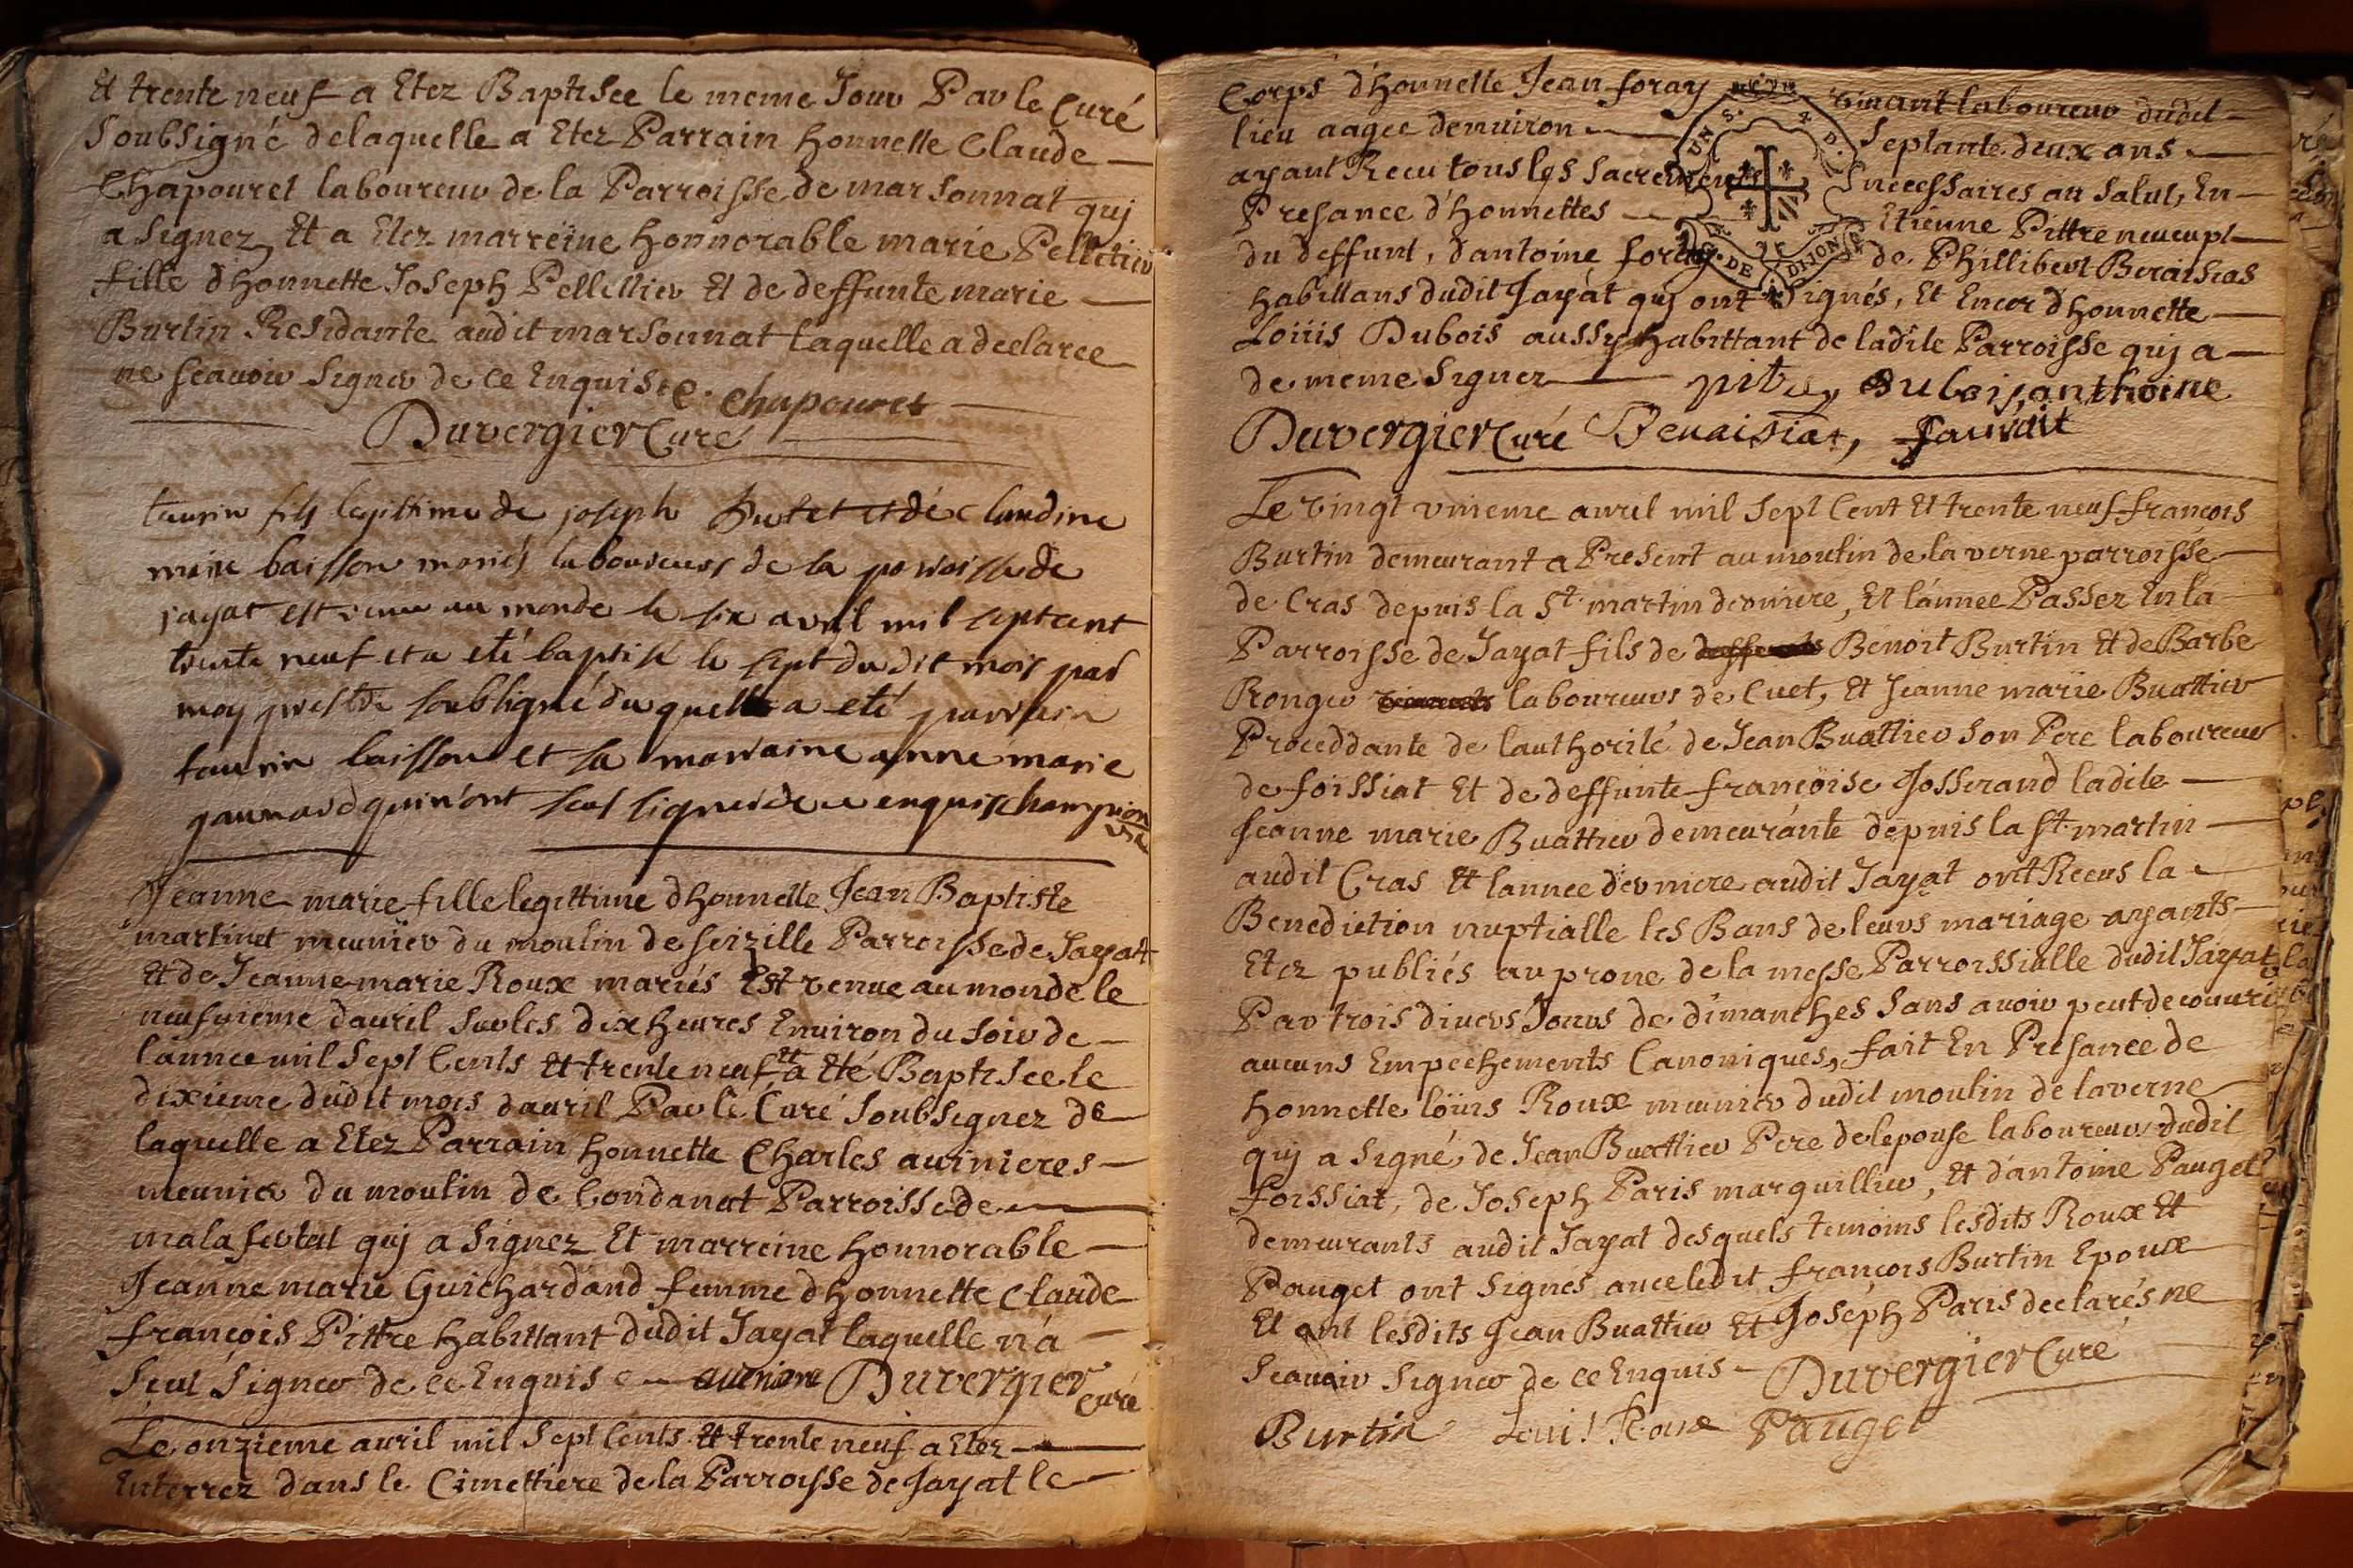 Et trente neuf a Etez Baptisee le meme Jour Par le Curé
Soubsigné delaquelle a Etez Parrain honnette Claude
Chapouret laboureur de la Parroisse de marsonnat quj
a Signez, Et a Etez marreïne honnorable marie Pelletier
fille d'honnette Joseph Pellettier Et de deffunte marie
Burtin Residante audit marsonnat laquelle a declaree
ne scavoir Signer de ce Enquise. c. chapouret
Duvergier Curé
taurin fils legittime de joseph Butet et de claudine
baisson mariés laboureurs de la parroisse de
jayat est venu au monde le six avril mil septcent
trente neuf et a eté baptisé le sept du dit mois par
moy prestre soubsigné du quel a eté parrain
taurin baisson et la marraine anne marie
gaumard qui n'ont sçus signer de ce enquis champion
Jeanne marie fille legittime d'honnette Jean Baptiste
martinet meunier du moulin de Seizille Parroisse de Jayat
Et de Jeanne marie Roux mariés Est venue au monde le
neufvieme d'avril Sur les dix heures Environ du Soir de
l'année mil Sept Cents Et trente neuf Et a Eté Baptisee le
dixieme dudit mois d'avril Par le Curé Soubsignez de
laquelle a Etez Parrain honnette Charles avrinieres
meunier du moulin de Condanat Parroisse de
malafertat quj a Signez Et marreine honnorable
Jeanne marie Guichardand femme d'honnette Claude
françois Pittre habittant dudit Jayat laquelle n'a
Seut Signer de ce Enquis Duvergier
Curé
Le onzieme avril mil Sept Cents Et trente neuf a Etez
Enterrez dans le Cimettiere de la Parroisse de Jayat le
Corps d'honnette Jean foray vivant laboureur dudit
lieu aagee d'environ Septante deux ans
ayant Recu tous les Sacrements necessaires au Salut, En
Presance d'honnettes Etienne Pittre neveu pt
du deffunt, d'antoine foray de Phillibert Benaiseas
GEN. DE DIJON
habittans dudit Jayat quj ont Signés, Et Encor d'honnette
Loüis Dubois aussy habittant de ladite Parroisse quj a
de meme Signez pitre, dubois, anthoine
Duvergier Curé Benaisiat,
Le vingt unieme avril mil Sept Cent Et trente neuf francois
Burtin demeurant a Present au moulin de la verne parroisse
de Cras depuis la St martin derniere, Et l'annee Passez En la
Parroisse de Jayat fils de Benoit Burtin Et de Barbe
Ronger laboureurs de Cuet, Et Jeanne marie Buattier
Proceddante de l'authorité de Jean Buattier Son Pere laboureur
de foissiat Et de deffunte françoise Josserand ladite
Jeanne marie Buattier demeurante depuis la St martin
audit Cras Et l'annee derniere audit Jayat ont Receus la
Benediction nuptialle les Bans de leurs mariage ayants
Etez publiés au prone de la messe Parroissialle dudit Jayat
Par trois divers Jours de dimanches Sans avoir peut decouvrir
aucuns Empechements Canoniques, fait En Presance de
honnette loüis Roux meunier dudit moulin de laverne
quj a Signé, de Jean Buattier Pere de lepouse laboureur dudit
foissiat, de Joseph Paris marguillier, Et d'antoine Pauget
demeurants audit Jayat desquels temoins lesdits Roux Et
Pauget ont Signés avec ledit françois Burtin Epoux
Et ont lesdits Jean Buattier Et Joseph Paris declarés ne
Scavoir Signer de ce Enquis Duvergier Curé
Burtin Loui! Roux Pauget